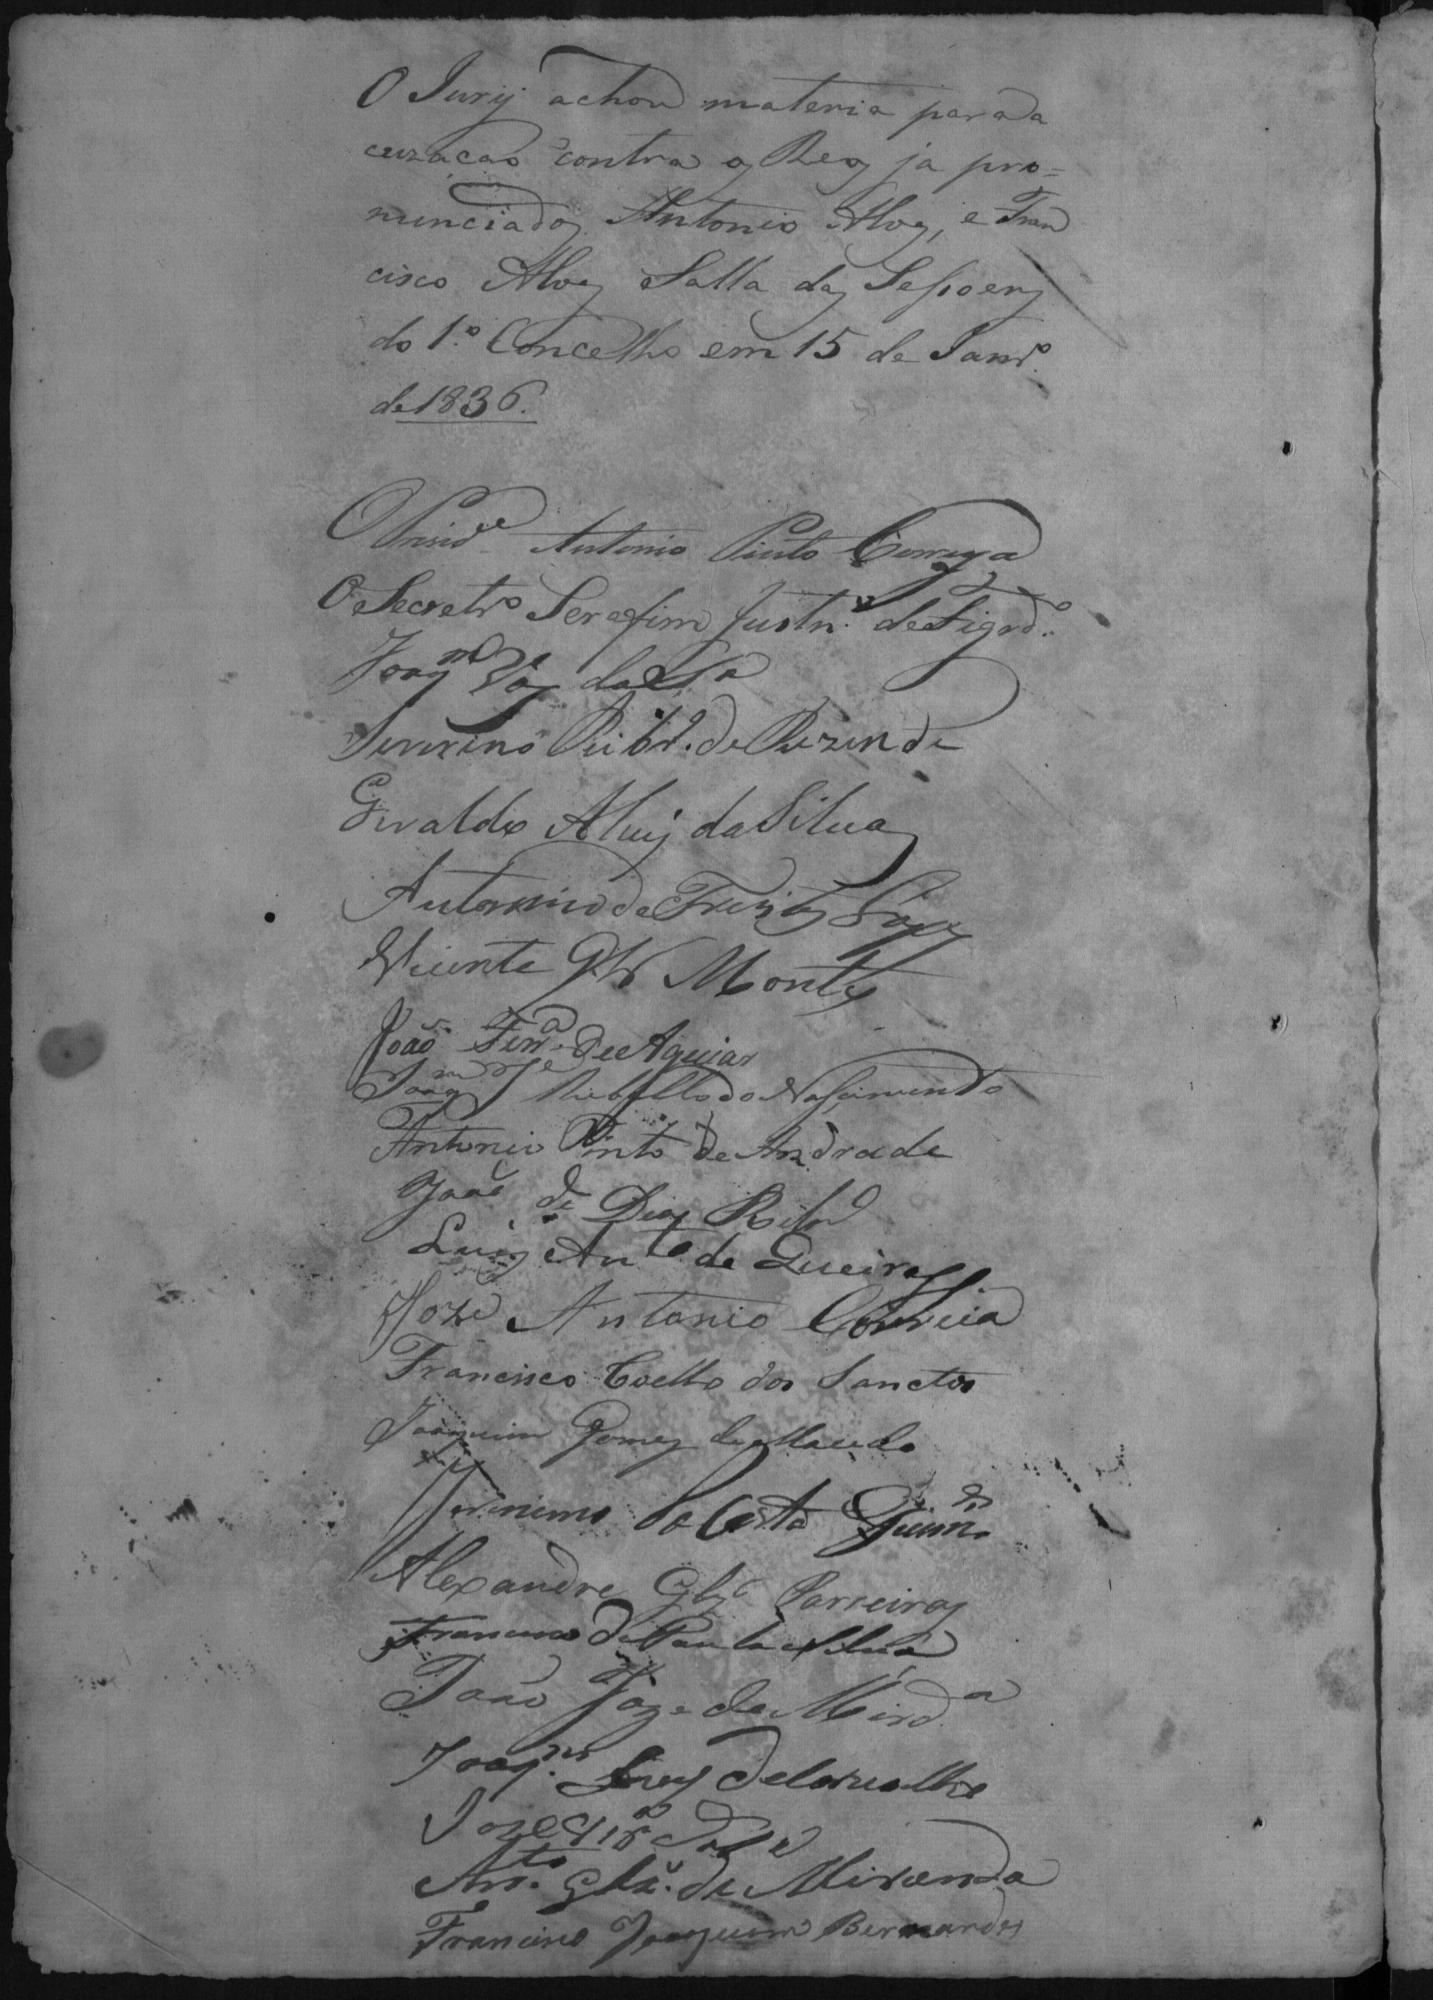 O Jury achou materia para a
cuzacaõ contra os Reos ja pro=
nunciados Antonio Alvez, e Fran
cisco Alvez Salla das Sessoens
do 1.º Concelho em 15 de Janrº.
de 1836.
O Presidᵉ Antonio Pinto Correya
O Secretrº Serafim Justnº. de Figrdº.
Joaqᵐ da Sᵃ
Severino Ribrº. de Rezende
Giraldo Alvez da Silva
Antonino de Freitas
Vicente Montes
Joaõ Ferrª. de Aguiar
Joaqᵐ Jᵉ Rebello do Nascimento
Antonio Pinto de Andrade
Joaõ Dias Ribrº
Luis Antº de Queiros
Joze Antonio Correia
Francisco Coelho dos Sanctos
Joaquim Gomes de Macedo
Jeronimo da Costa Guimˢ.
Alexandre Glz Parreiras
Francisco de Paula e Silva
Joaõ Joze de Mirdª
Joaqᵐ. de Carvalho
Joze
Antº. de Miranda
Francisco Joaquim Bernardes